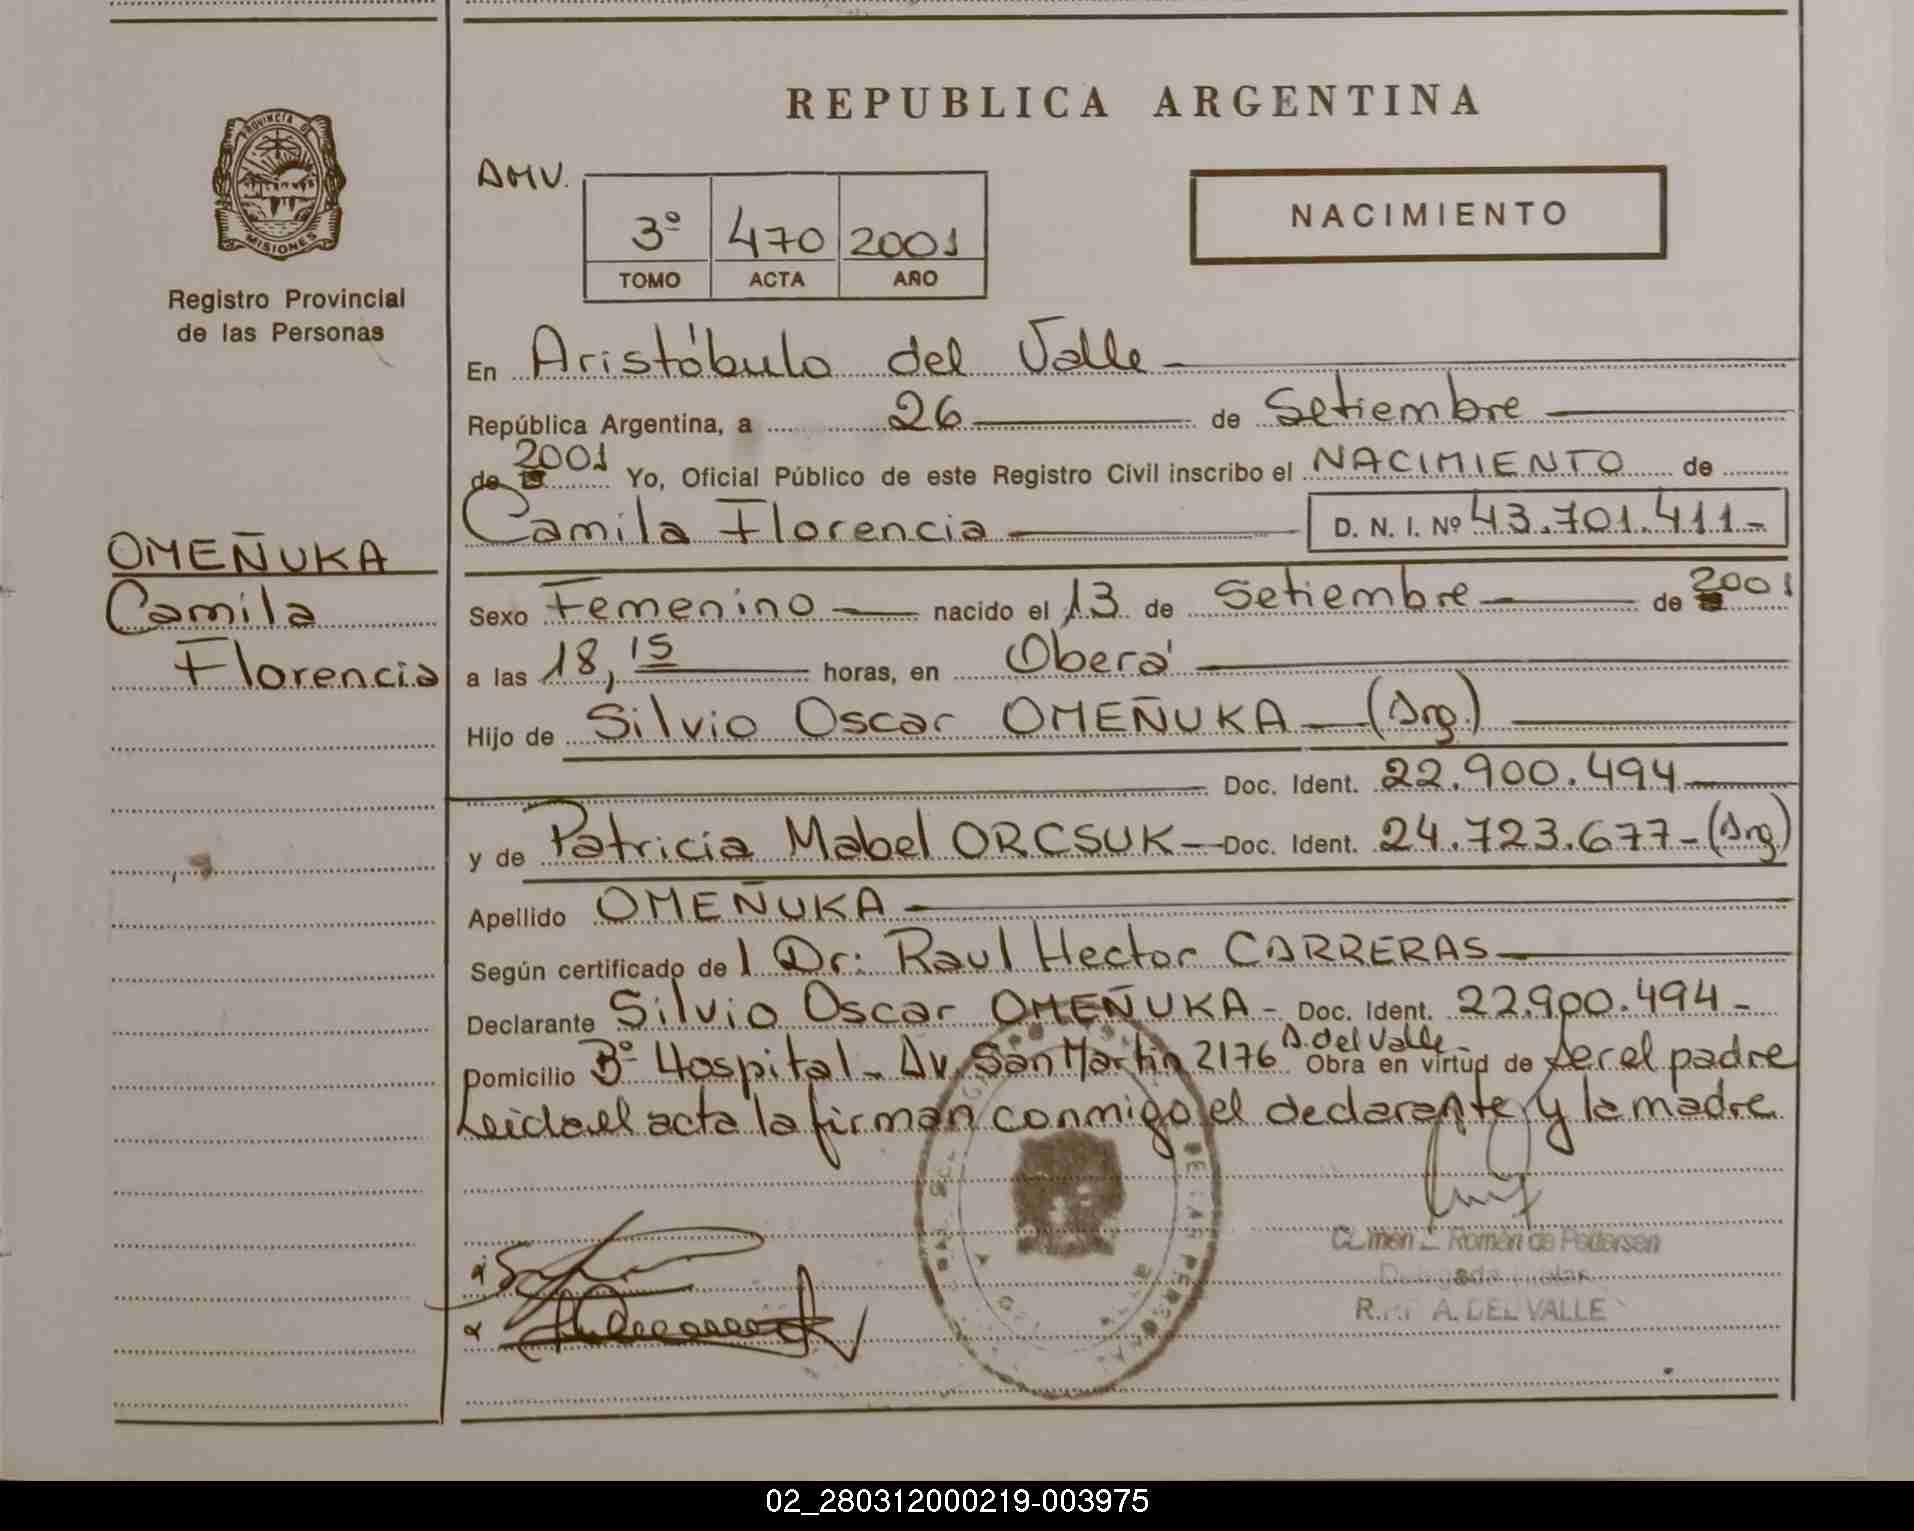 REPUBLICA ARGENTINA
PROVINCIA DE
MISIONES
Registro Provincial
de las Personas
AMV.
3º 470 2001
TOMO ACTA AÑO
NACIMIENTO
En Aristóbulo del Valle
República Argentina, a 26 de Setiembre
de 2001 Yo, Oficial Público de este Registro Civil inscribo el NACIMIENTO de
Camila Florencia D. N. I. Nº 43.701.411-
OMEÑUKA
Camila
Florencia
Sexo Femenino nacido el 13 de Setiembre de 2001
a las 18,15 horas, en Oberá
Hijo de Silvio Oscar OMEÑUKA (Arg.)
Doc. Ident. 22.900.494
y de Patricia Mabel ORCSUK Doc. Ident. 24.723.677-(Arg)
Apellido OMEÑUKA
Según certificado de l Dr: Raul Hector CARRERAS
Declarante Silvio Oscar OMEÑUKA - Doc. Ident. 22.900.494-
Domicilio Bº Hospital - Av. San Martin 2176 A. del Valle Obra en virtud de ser el padre
Leida el acta la firman conmigo el declarante y la madre
DE LAS PERSONAS
Román de Pedersen
A. DEL VALLE
02_280312000219-003975